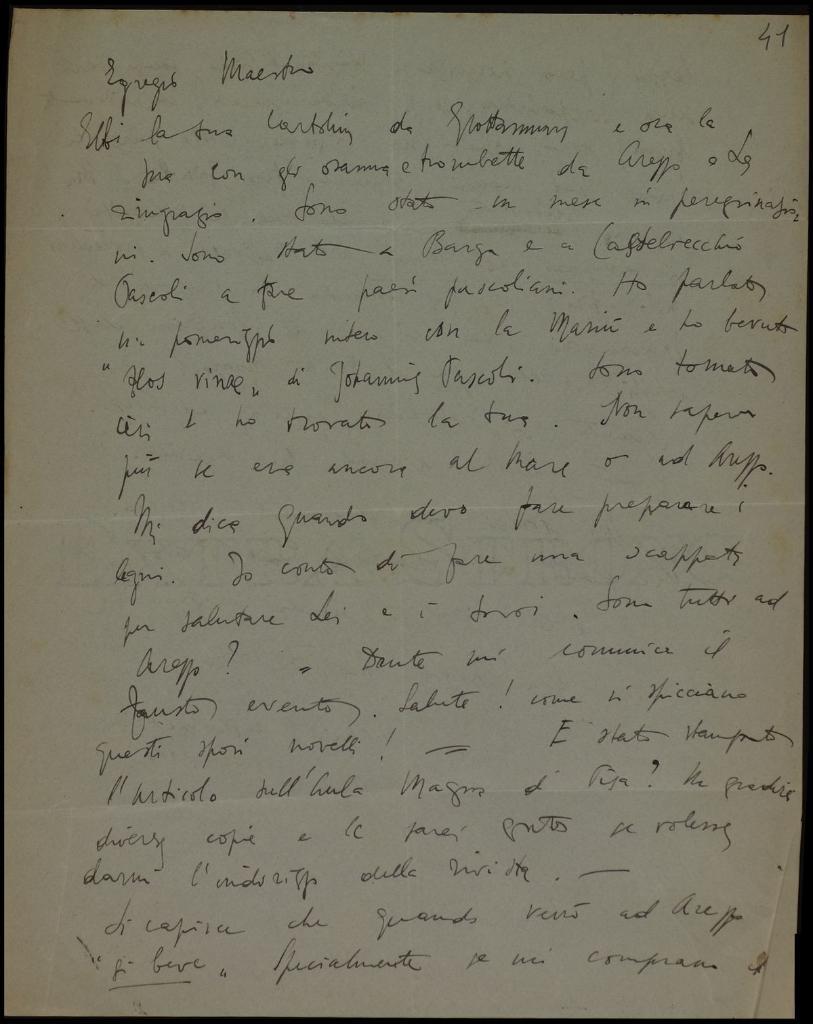 41
Egregio Maestro
Ebbi la sua cartolina da Grottammare e ora la
sua con gli osanna e trombette da Arezzo e La
ringrazio. Sono stato un mese in peregrinazio=
ni. Sono stato a Barga e a Castelvecchio
Pascoli a fare paesi pascoliani. Ho parlato
un pomeriggio intero con la Mariù e ho bevuto
"flos vineae" di Johannis Pascoli. Sono tornato
ieri e ho trovato la sua. Non sapevo
più se era ancora al mare o ad Arezzo.
Mi dica quando devo fare preparare i
legni. Io conto di fare una scappata
per salutare Lei e i suoi. Sono tutti ad
Arezzo? = Dante mi comunica il
fausto evento. Salute! come si spicciano
questi sposi novelli! = E stato stampato
l'articolo sull'Aula Magna di Pisa? Ne gradirei
diverse copie e le sarei grato se volesse
darmi l'indirizzo della rivista. —
Si capisce che quando verrò ad Arezzo
"si beve" Specialmente se mi comprano